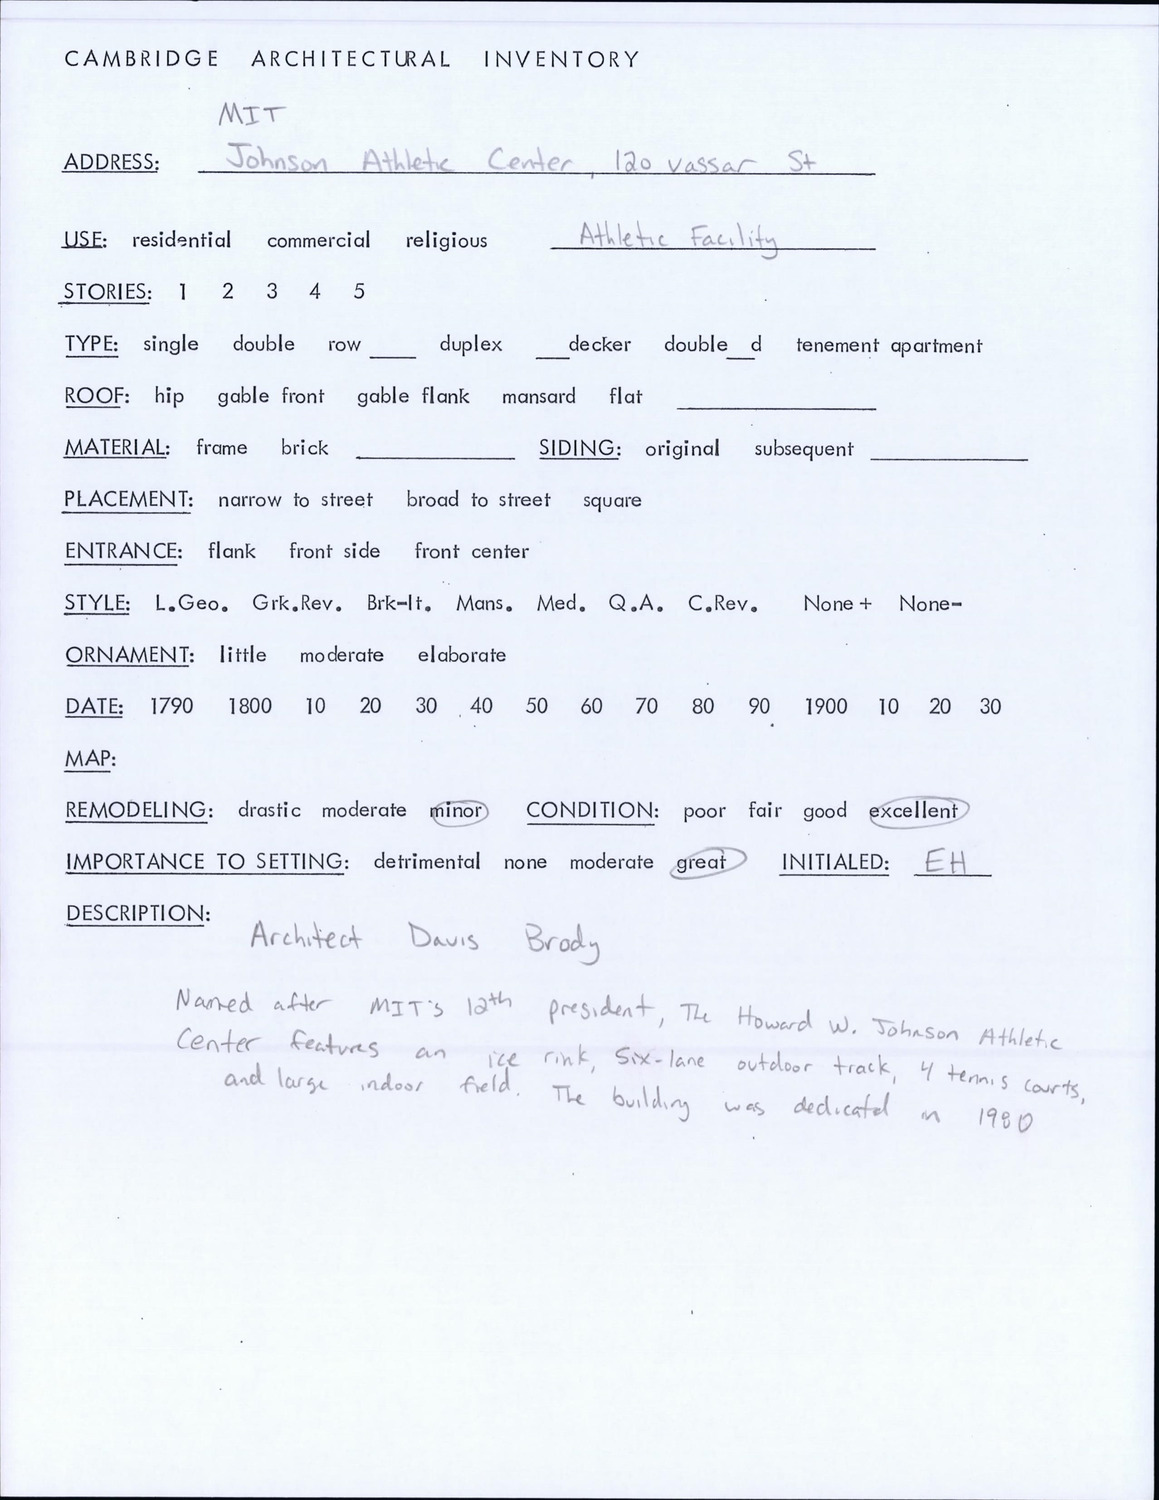 CAMBRIDGE ARCHITECTURAL INVENTORY
MIT
ADDRESS: Johnson Athletic Center, 120 Vassar St
USE: residential commercial religious Athletic Facility
STORIES: 1 2 3 4 5
TYPE: single double row ____ duplex ___decker double__d tenement apartment
ROOF: hip gable front gable flank mansard flat ____
MATERIAL: frame brick ____ SIDING: original subsequent ____
PLACEMENT: narrow to street broad to street square
ENTRANCE: flank front side front center
STYLE: L.Geo. Grk.Rev. Brk-It. Mans. Med. Q.A. C.Rev. None+ None-
ORNAMENT: little moderate elaborate
DATE: 1790 1800 10 20 30 40 50 60 70 80 90 1900 10 20 30
MAP:
REMODELING: drastic moderate minor CONDITION: poor fair good excellent
IMPORTANCE TO SETTING: detrimental none moderate great INITIALED: EH
DESCRIPTION:
Architect Davis Brody
Named after MIT's 12th president, The Howard W. Johnson Athletic
Center features an ice rink, six-lane outdoor track, 4 tennis courts,
and large indoor field. The building was dedicated in 1980